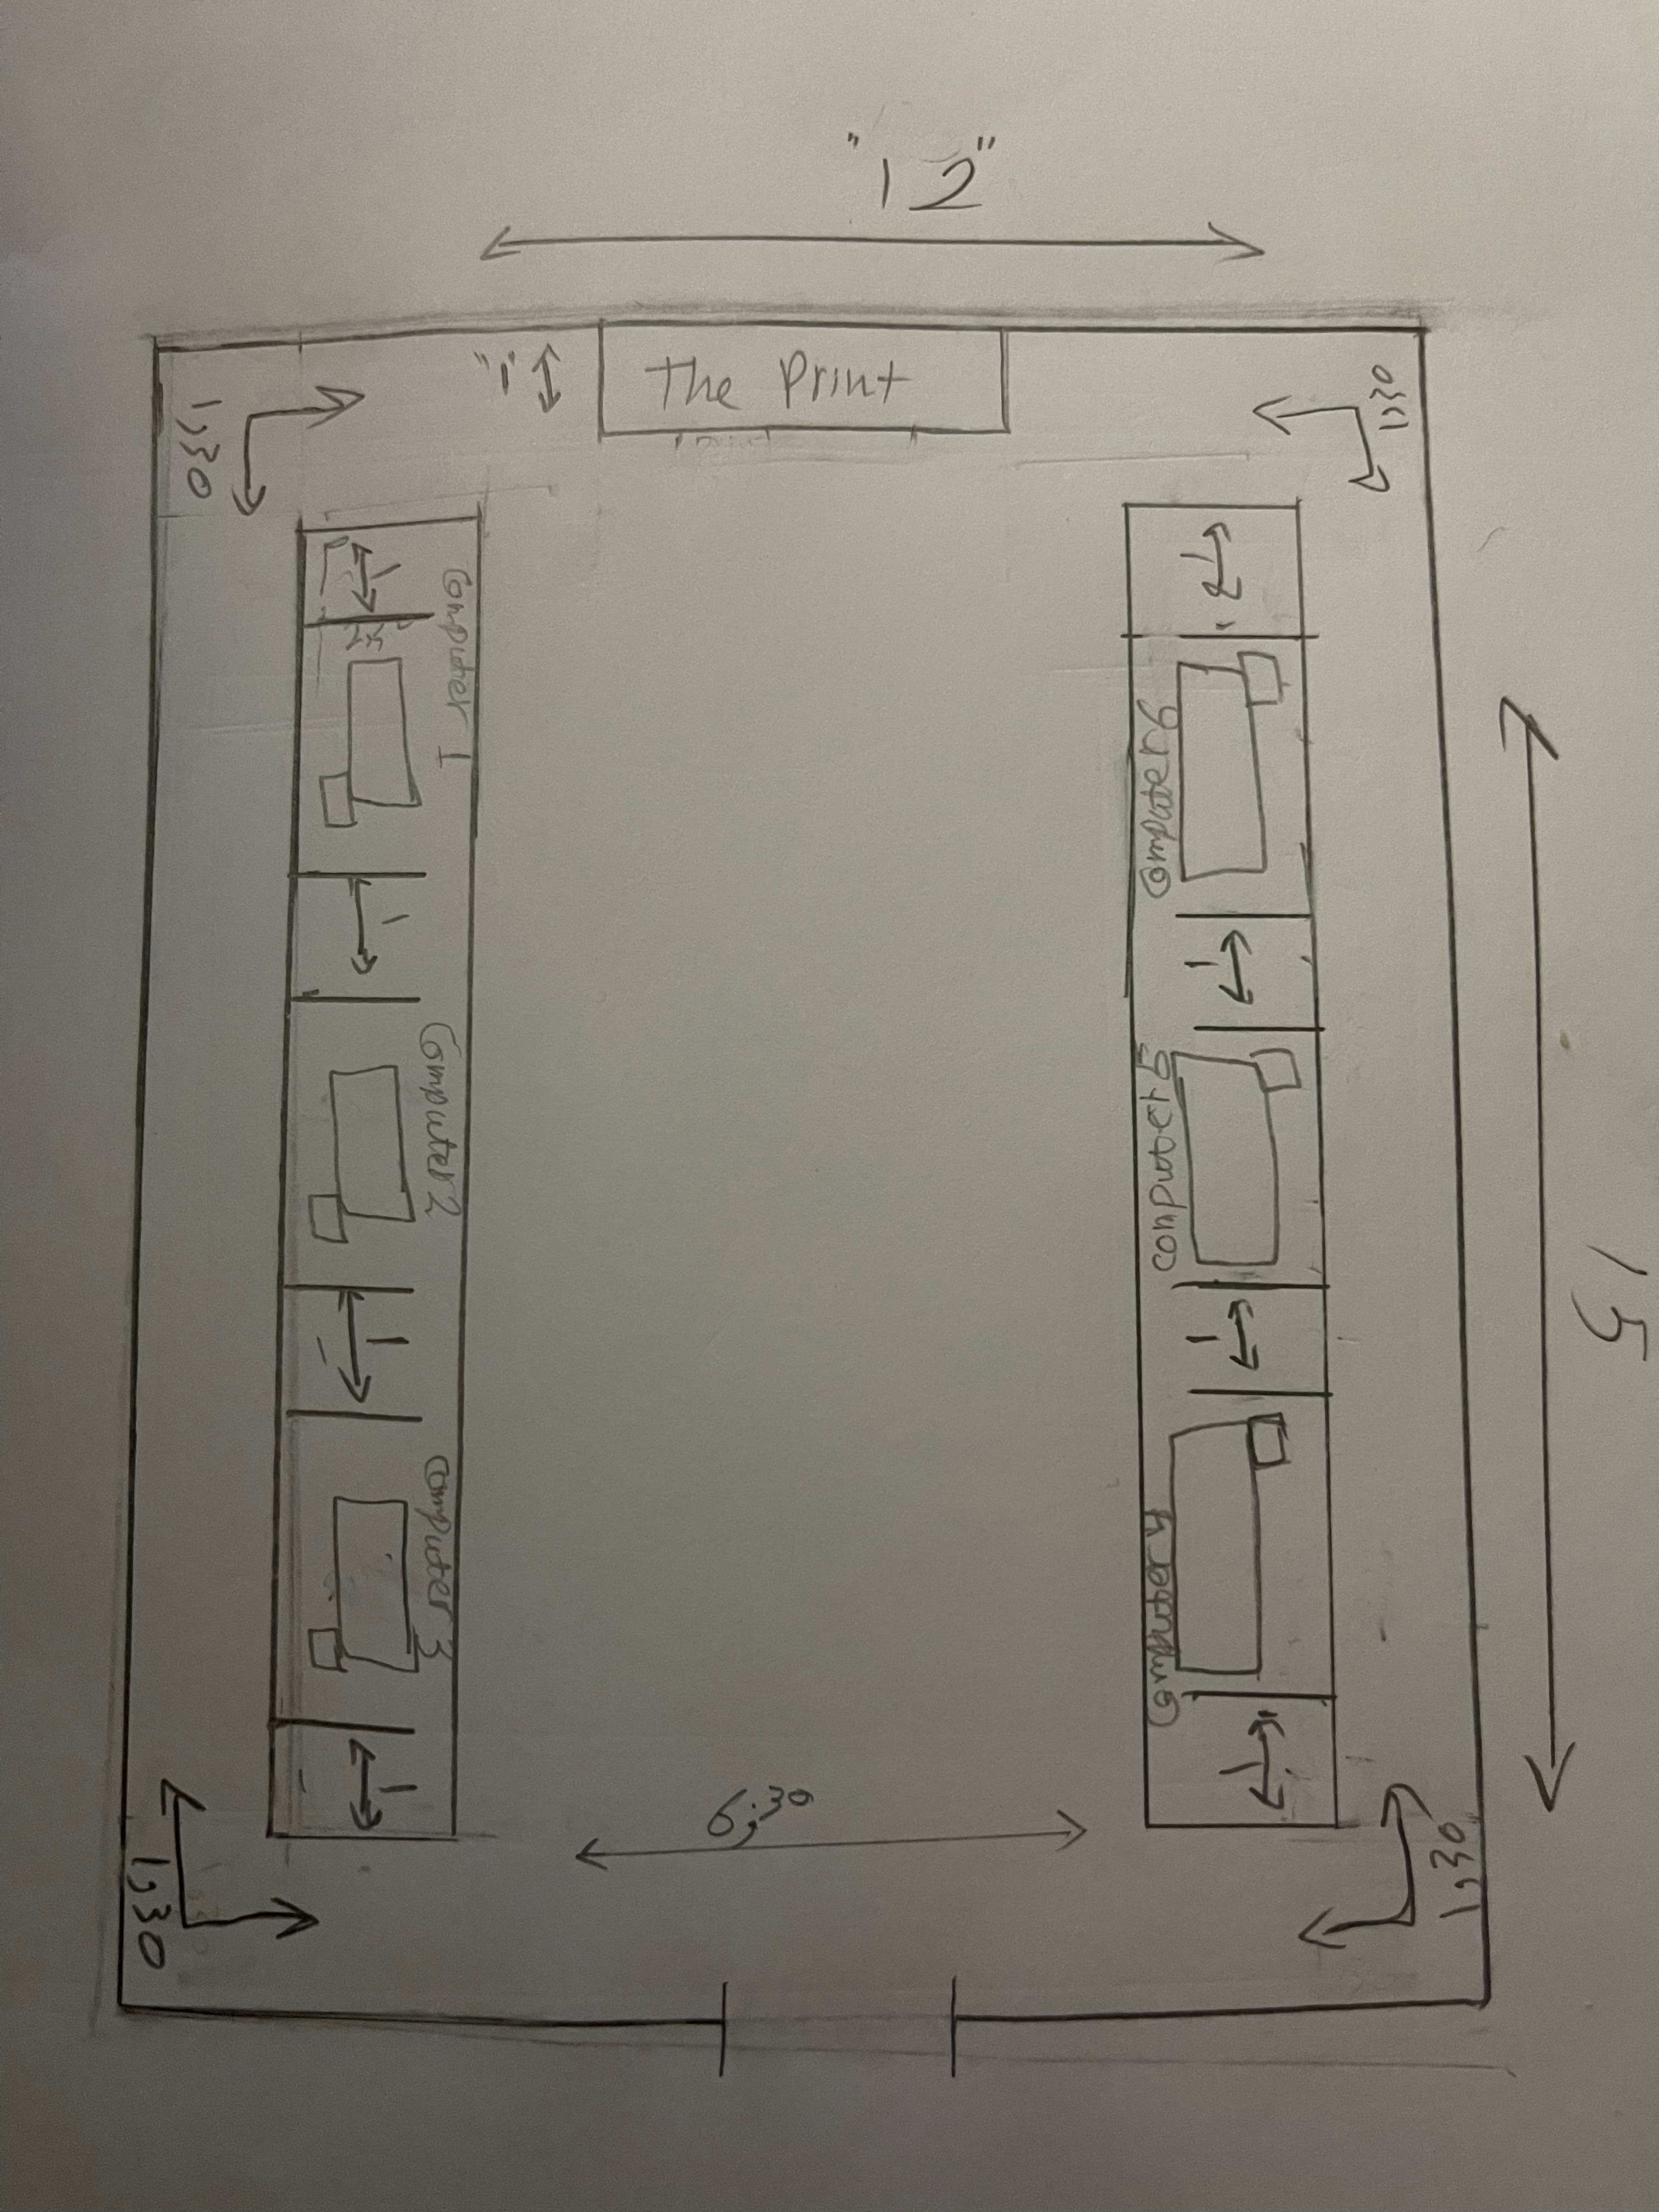 "12"
"1"
The Print
1,30
1,30
1
Computer 1
1
Computer 2
1
Computer 3
1
1
Computer 6
1
computer 5
1
Computer 4
1
15
6;30
1,30
1,30